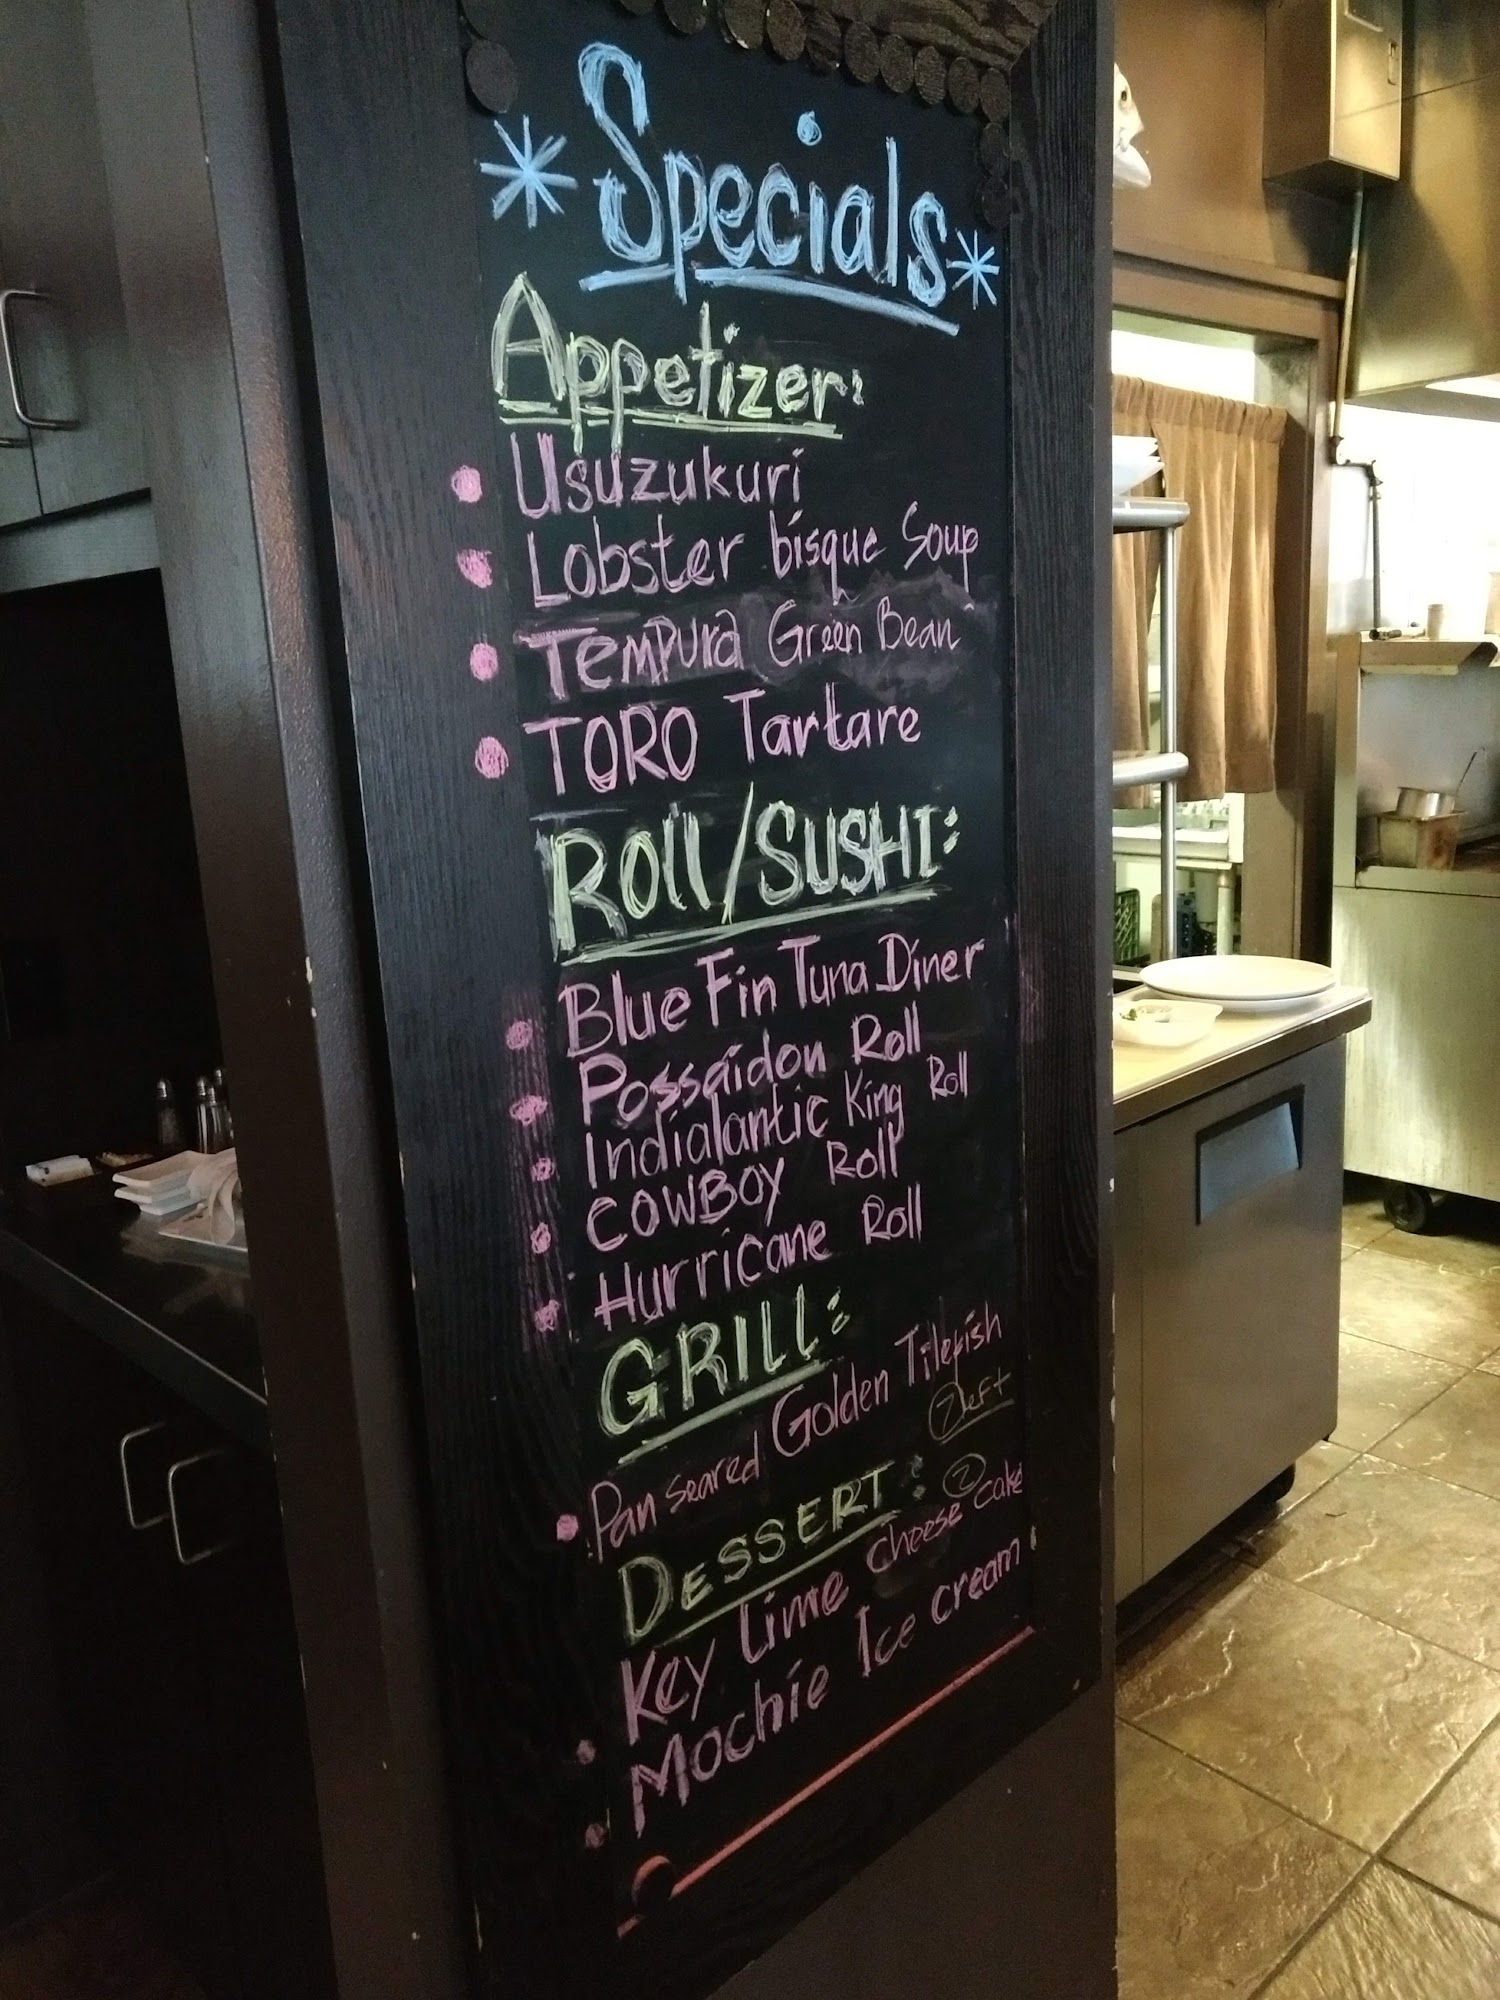 *Specials*
Appetizer:
• Usuzukuri
• Lobster bisque Soup
• Tempura Green Bean
• TORO Tartare
Roll/SUSHI:
• Blue Fin Tuna Diner
• Possaidon Roll
• Indialantic King Roll
• COWBOY Roll
• Hurricane Roll
GRILL:
• Pan seared Golden Tilefish
2 left
DESSERT: 2
• Key lime cheese cake
• Mochie Ice cream